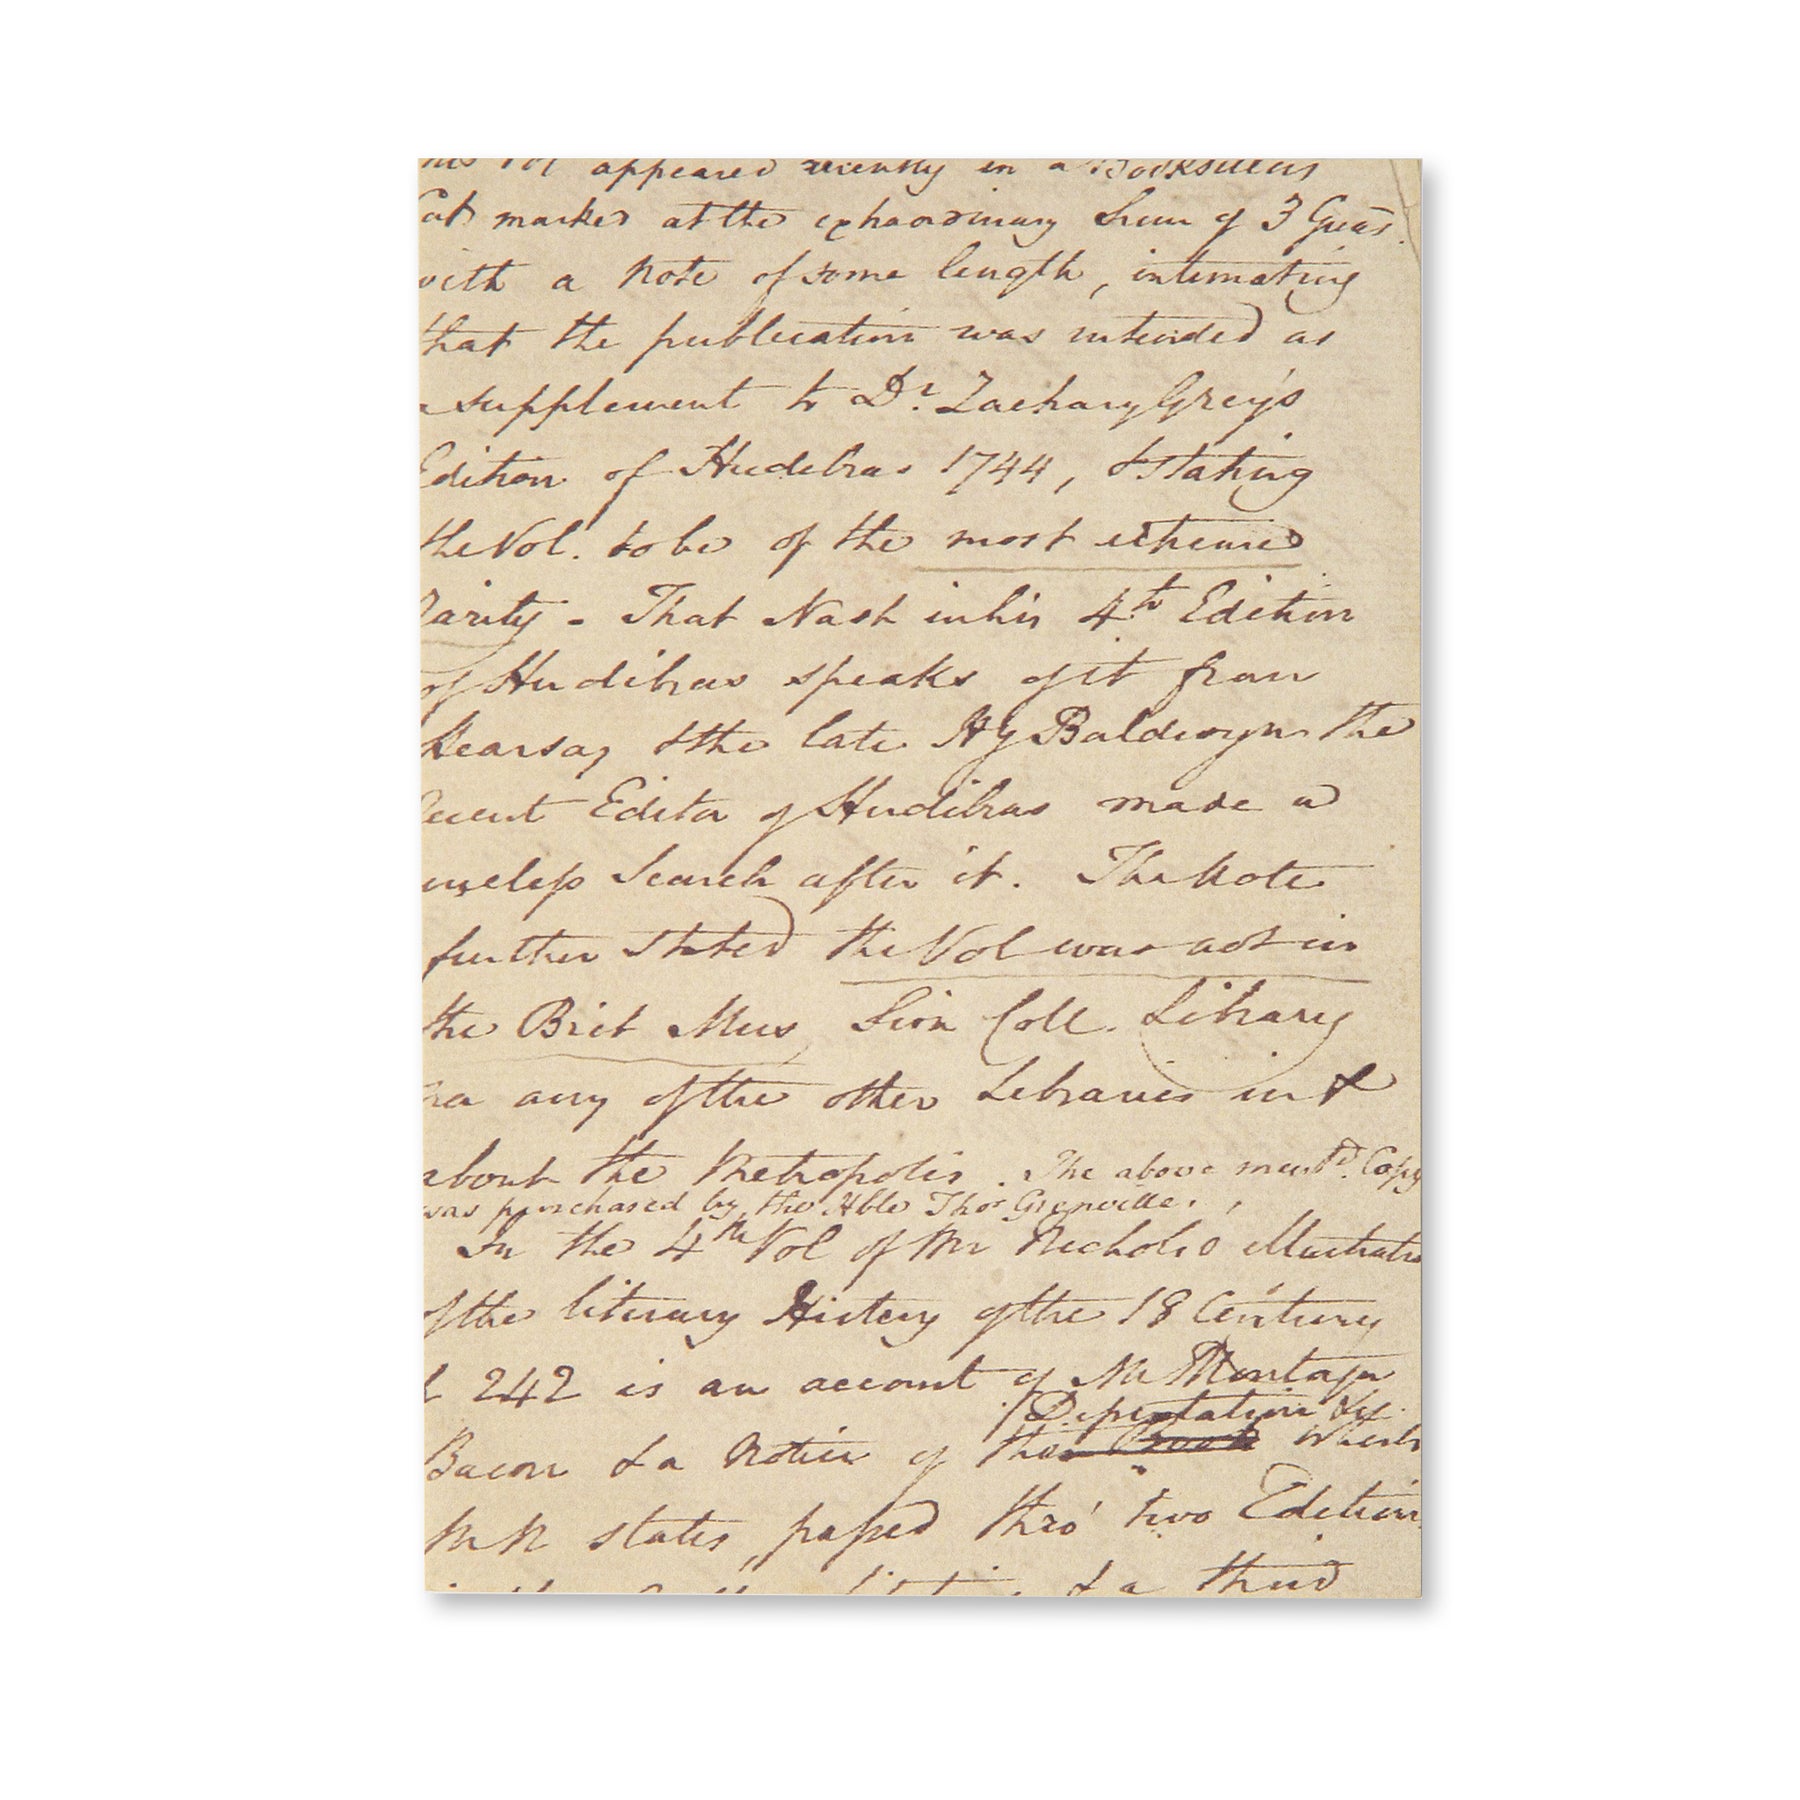 this Vol appeared recently in a Booksellers
Cat marked at the extraordinary Sum of 3 Gueas.
with a Note of some length, intimating
that the publication was intended as
a supplement to Dr. Zachary Grey's
Edition of Hudibras 1744, & stating
the Vol. to be of the most extreme
rarity - That Nash in his 4th Edition
of Hudibras speaks of it from
Hearsay & the late Hy Baldwyn the
recent Editor of Hudibras made a
useless Search after it. The Note
further stated the Vol was not in
the Brit Mus, Sion Coll. Library
nor any of the other Libraries in &
about the Metropolis. The above ment'd. Copy
was purchased by the Hble Thos Grenville.
In the 4th Vol of Mr Nichols's Illustratio
of the literary History of the 18 Century
242 is an account of Mr Montagu
Dissertation &c
Bacon & a Notice of the Book which
Mr N states, passed thro' two Edition
& a third